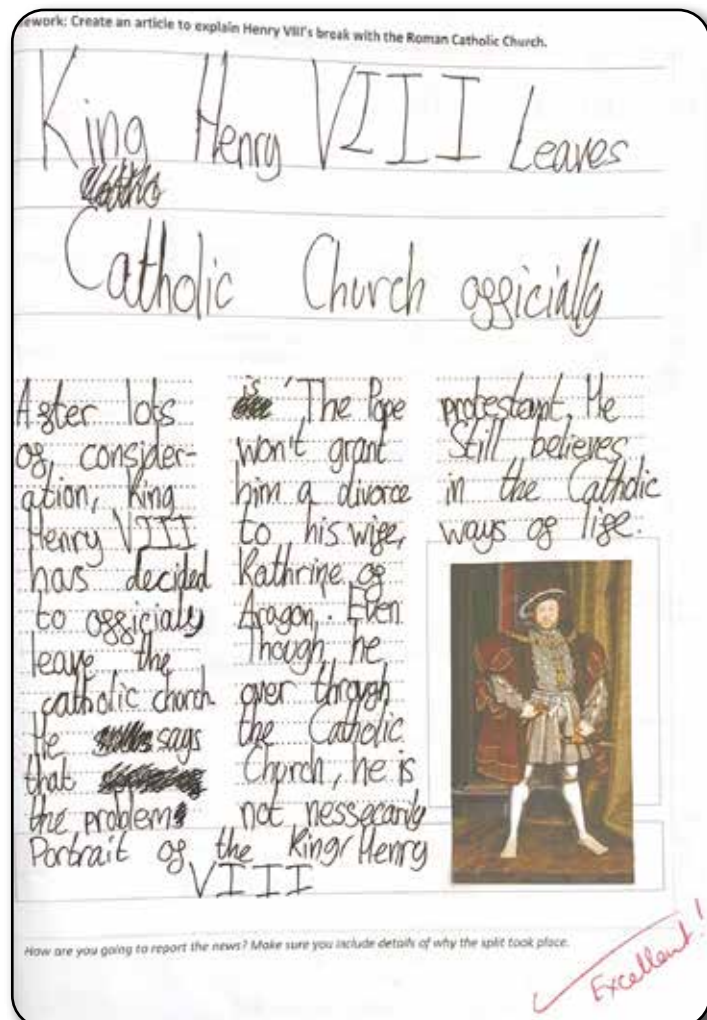 ework: Create an article to explain Henry VIII's break with the Roman Catholic Church.
King Henry VIII Leaves
Catholic Church officially
After lots
of consider-
ation, King
Henry VIII
has decided
to officially
leave the
catholic church
He says
that
the problem
is The Pope
won't grant
him a divorce
to his wife,
Kathrine of
Aragon. Even
Though, he
over through
the Catholic
Church, he is
not nessecarily
protestant. He
Still believes
in the Catholic
ways of life.
Portrait of the King Henry
VIII
How are you going to report the news? Make sure you include details of why the split took place.
Excellent!